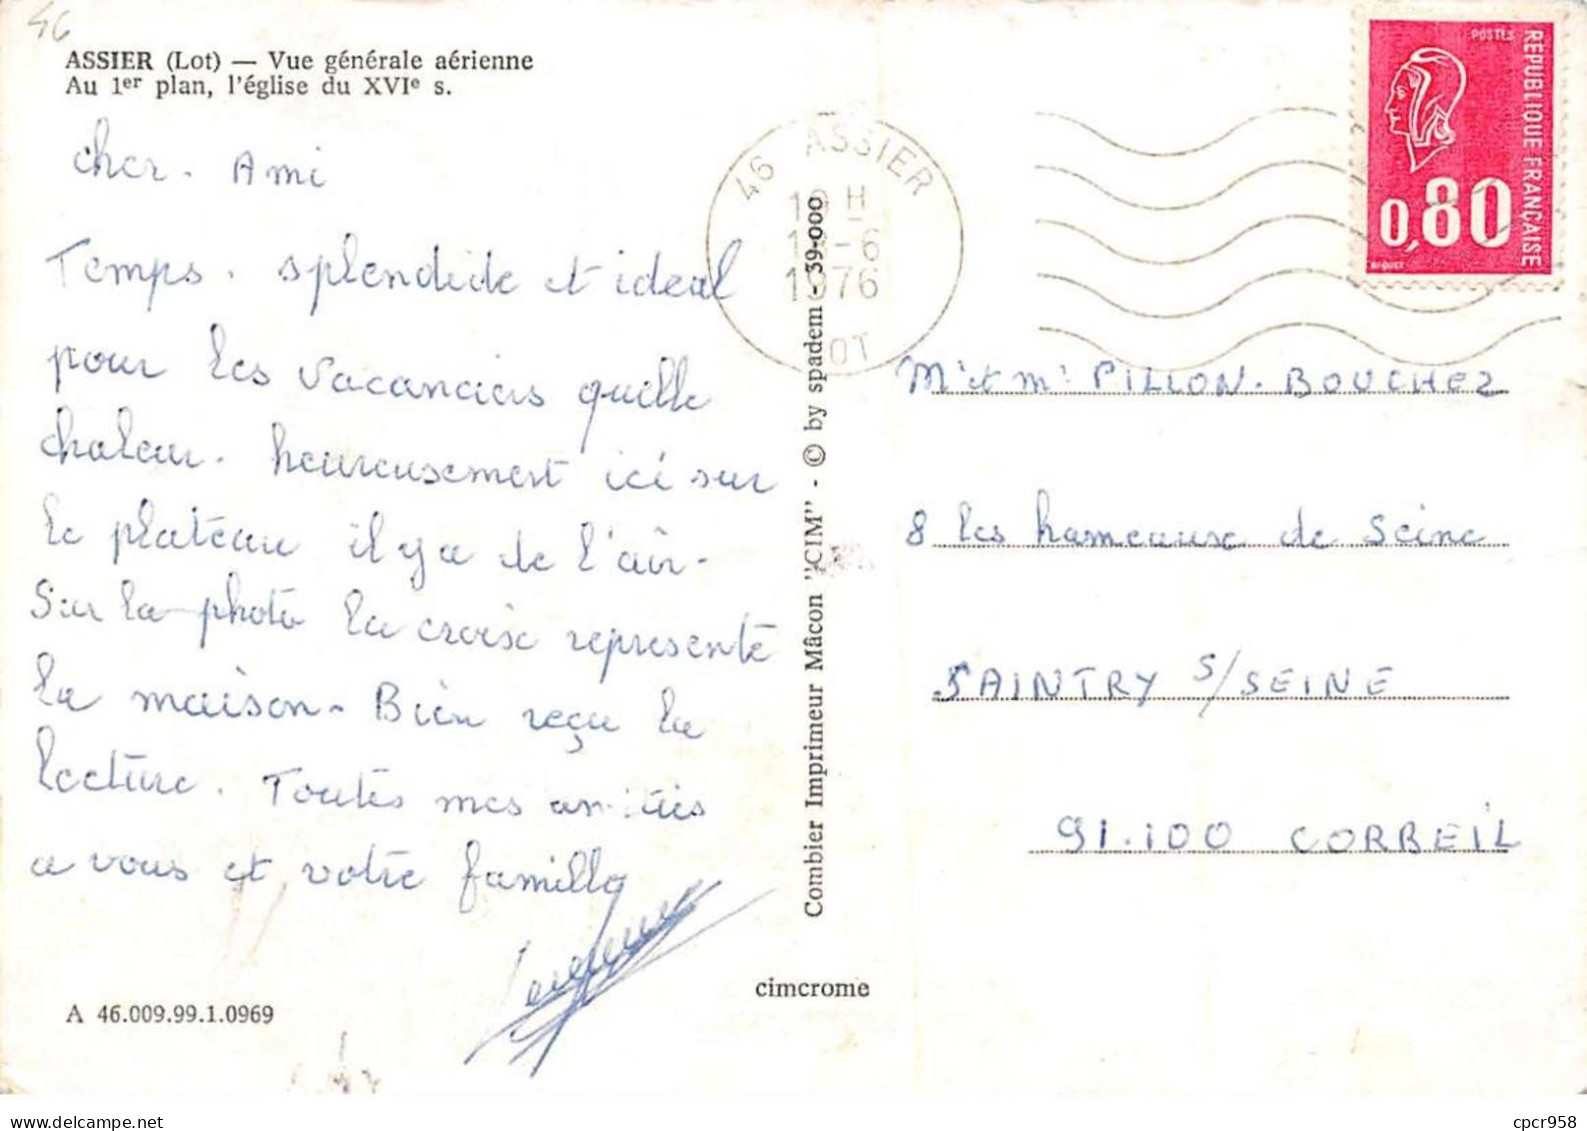 46
ASSIER (Lot) — Vue générale aérienne
Au 1er plan, l'église du XVIe s.
cher. Ami
Temps. splendide et ideal
pour les vacanciers quelle
chaleur. heureusement ici sur
le plateau il y a de l'air.
Sur la photo la croix représente
la maison - Bien reçu la
lecture. Toutes mes amitiés
a vous et votre famille
A 46.009.99.1.0969
cimcrome
Combier Imprimeur Mâcon "CIM" - © by spadem - 39-000
46 ASSIER
19 H
-6
1976
LOT
POSTES
RÉPUBLIQUE FRANÇAISE
0,80
BEQUET
Mr et Me PILLON-BOUCHEZ
8 les hameaux de Seine
SAINTRY S/SEINE
91.100 CORBEIL
cpcr958